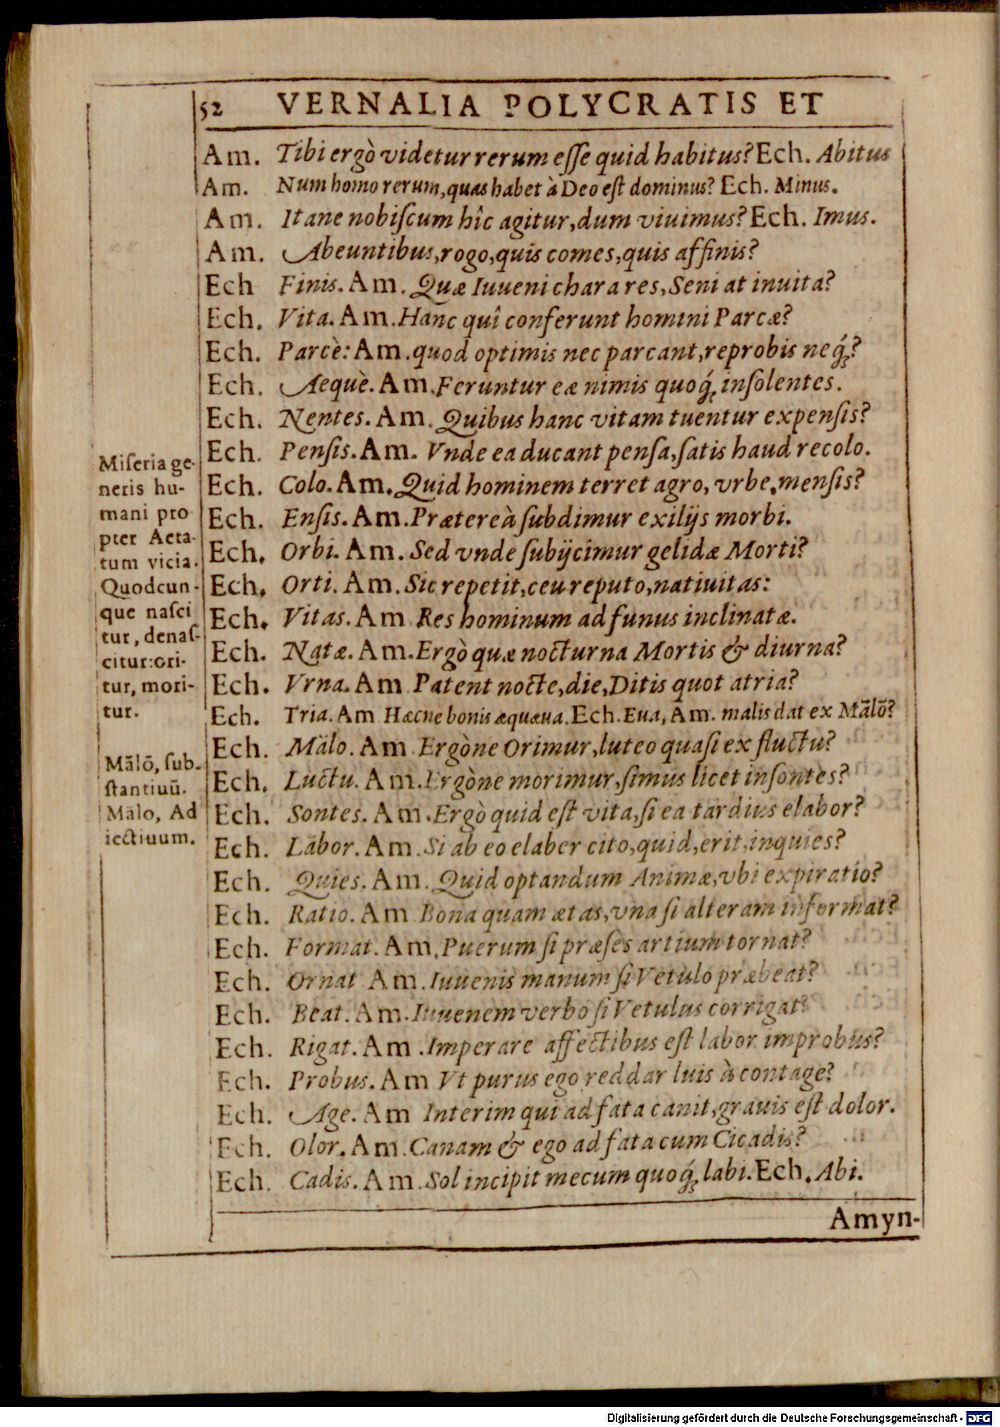 52 VERNALIA POLYCRATIS ET
Am. Tibi ergò videtur rerum eſſe quid habitus? Ech. Abitus
Am. Num homo rerum, quas habet à Deo eſt dominus? Ech. Minus.
Am. Itane nobiſcum hîc agitur, dum viuimus? Ech. Imus.
Am. Abeuntibus, rogo, quis comes, quis affinis?
Ech Finis. Am. Quæ Iuueni chara res, Seni at inuita?
Ech. Vita. Am. Hanc quî conferunt homini Parcæ?
Ech. Parcè: Am. quod optimis nec parcant, reprobis neq́;?
Ech. Aequè. Am. Feruntur eæ nimis quoq́; inſolentes.
Ech. Nentes. Am. Quibus hanc vitam tuentur expenſis?
Ech. Penſis. Am. Vnde ea ducant penſa, ſatis haud recolo.
Ech. Colo. Am. Quid hominem terret agro, vrbe, menſis?
Ech. Enſis. Am. Prætereà ſubdimur exilijs morbi.
Ech. Orbi. Am. Sed vnde ſubijcimur gelidæ Morti?
Ech. Orti. Am. Sic repetit, ceu reputo, natiuitas:
Ech. Vitas. Am Res hominum ad funus inclinatæ.
Ech. Natæ. Am. Ergò quæ nocturna Mortis & diurna?
Ech. Vrna. Am Patent nocte, die, Ditis quot atria?
Ech. Tria. Am Hæcne bonis æquæua. Ech. Eua, Am. malis dat ex Mālō?
Ech. Mălo. Am Ergòne Orimur, luteo quaſi ex fluctu?
Ech. Luctu. Am. Ergòne morimur, ſimus licet inſontes?
Ech. Sontes. Am. Ergò quid eſt vita, ſi ea tardius elabor?
Ech. Lābor. Am. Si ab eo elaber cito, quid, erit, inquies?
Ech. Quies. Am. Quid optandum Animæ, vbi expiratio?
Ech. Ratio. Am Bona quam ætas, vna ſi alteram informat?
Ech. Format. Am. Puerum ſi præſes artium tornat?
Ech. Ornat Am. Iuuenis manum ſi Vetulo præbeat?
Ech. Beat. Am. Iuuenem verbo ſi Vetulus corrigat?
Ech. Rigat. Am. Imperare affectibus eſt labor improbus?
Ech. Probus. Am Vt purus ego reddar luis à contage?
Ech. Age. Am Interim qui ad fata canit, grauis eſt dolor.
Ech. Olor. Am. Canam & ego ad fata cum Cicadis?
Ech. Cadis. Am. Sol incipit mecum quoq́; labi. Ech. Abi.
Amyn-
Miſeria ge-
neris hu-
mani pro
pter Aeta-
tum vicia.
Quodcun-
que naſci
tur, denaſ-
citur: ori-
tur, mori-
tur.
Mālō, ſub-
ſtantiuū.
Mălo, Ad
iectiuum.
Digitalisierung gefördert durch die Deutsche Forschungsgemeinschaft - DFG